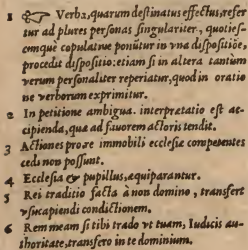 1 ☞ Verba, quarum destinatus effectus, refer
tur ad plures personas singulariter, quoties-
cunque copulatiue ponũtur in vna dispositiõe,
procedit dispositio: etiam si in altera tantùm
verum personaliter reperiatur, quod in oratio
ne verborum exprimitur.
2 In petitione ambigua. interpretatio est ac-
cipienda, qua ad fauorem actoris tendit.
3 Actiones pro re immobili ecclesiæ competentes
cedi non possunt.
4 Ecclesia & pupillus, æquiparantur.
5 Rei traditio facta à non domino, transfert
vsucapiendi conditionem.
6 Rem meam si tibi trado vt tuam, Iudicis au-
thoritate, transfero in te dominium.